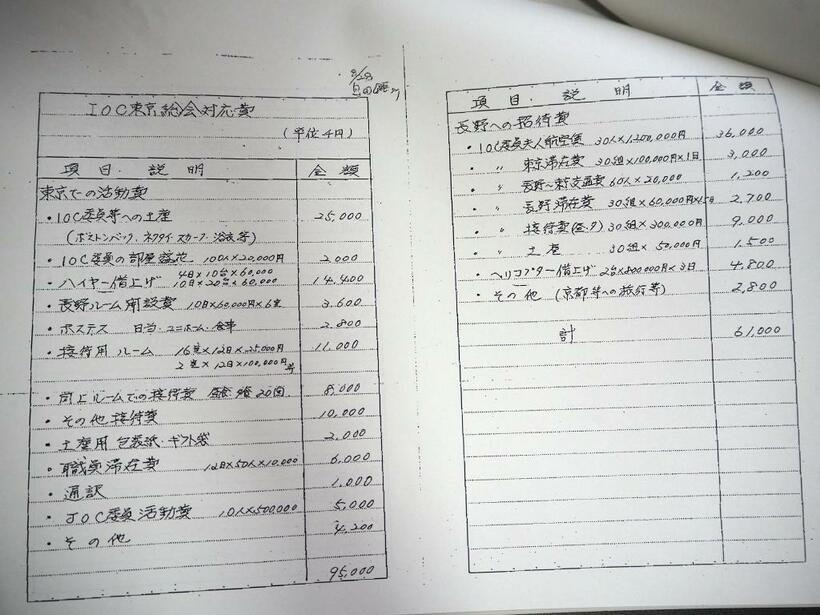 8/28
IOC東京総会対応費
(単位千円)
項目・説明 金額
東京での活動費
・IOC委員等への土産 25,000
(ボストンバック・ネクタイ・スカーフ・浴衣等)
・IOC委員の部屋装花 100人×20,000円 2,000
・ハイヤー借上げ 4日×10台×60,000 14,400
10日×20台×60,000
・長野ルーム開設費 10日×60,000円×6室 3,600
・ホステス 日当・ユニホーム・食事 2,800
・接待用ルーム 16室×12日×25,000円 11,000
2室×12日×100,000円
・同上ルームでの接待費 昼食・夕食20回 8,000
・その他接待費 10,000
・土産用包装紙・ギフト袋 2,000
・職員滞在費 12日×50人×10,000 6,000
・通訳 1,000
・JOC委員活動費 10人×500,000 5,000
・その他 4,200
95,000
項目・説明 金額
長野への招待費
・IOC委員夫人航空賃 30人×1,200,000円 36,000
・〃 東京滞在費 30組×100,000円×1日 3,000
・〃 長野〜東京交通費 60人×20,000 1,200
・〃 長野滞在費 30組×60,000円×1.5日 2,700
・〃 接待費 30組×300,000円 9,000
・〃 土産 30組×50,000円 1,500
・ヘリコプター借上げ 2台×800,000円×3日 4,800
・その他 (京都等への旅行等) 2,800
計 61,000